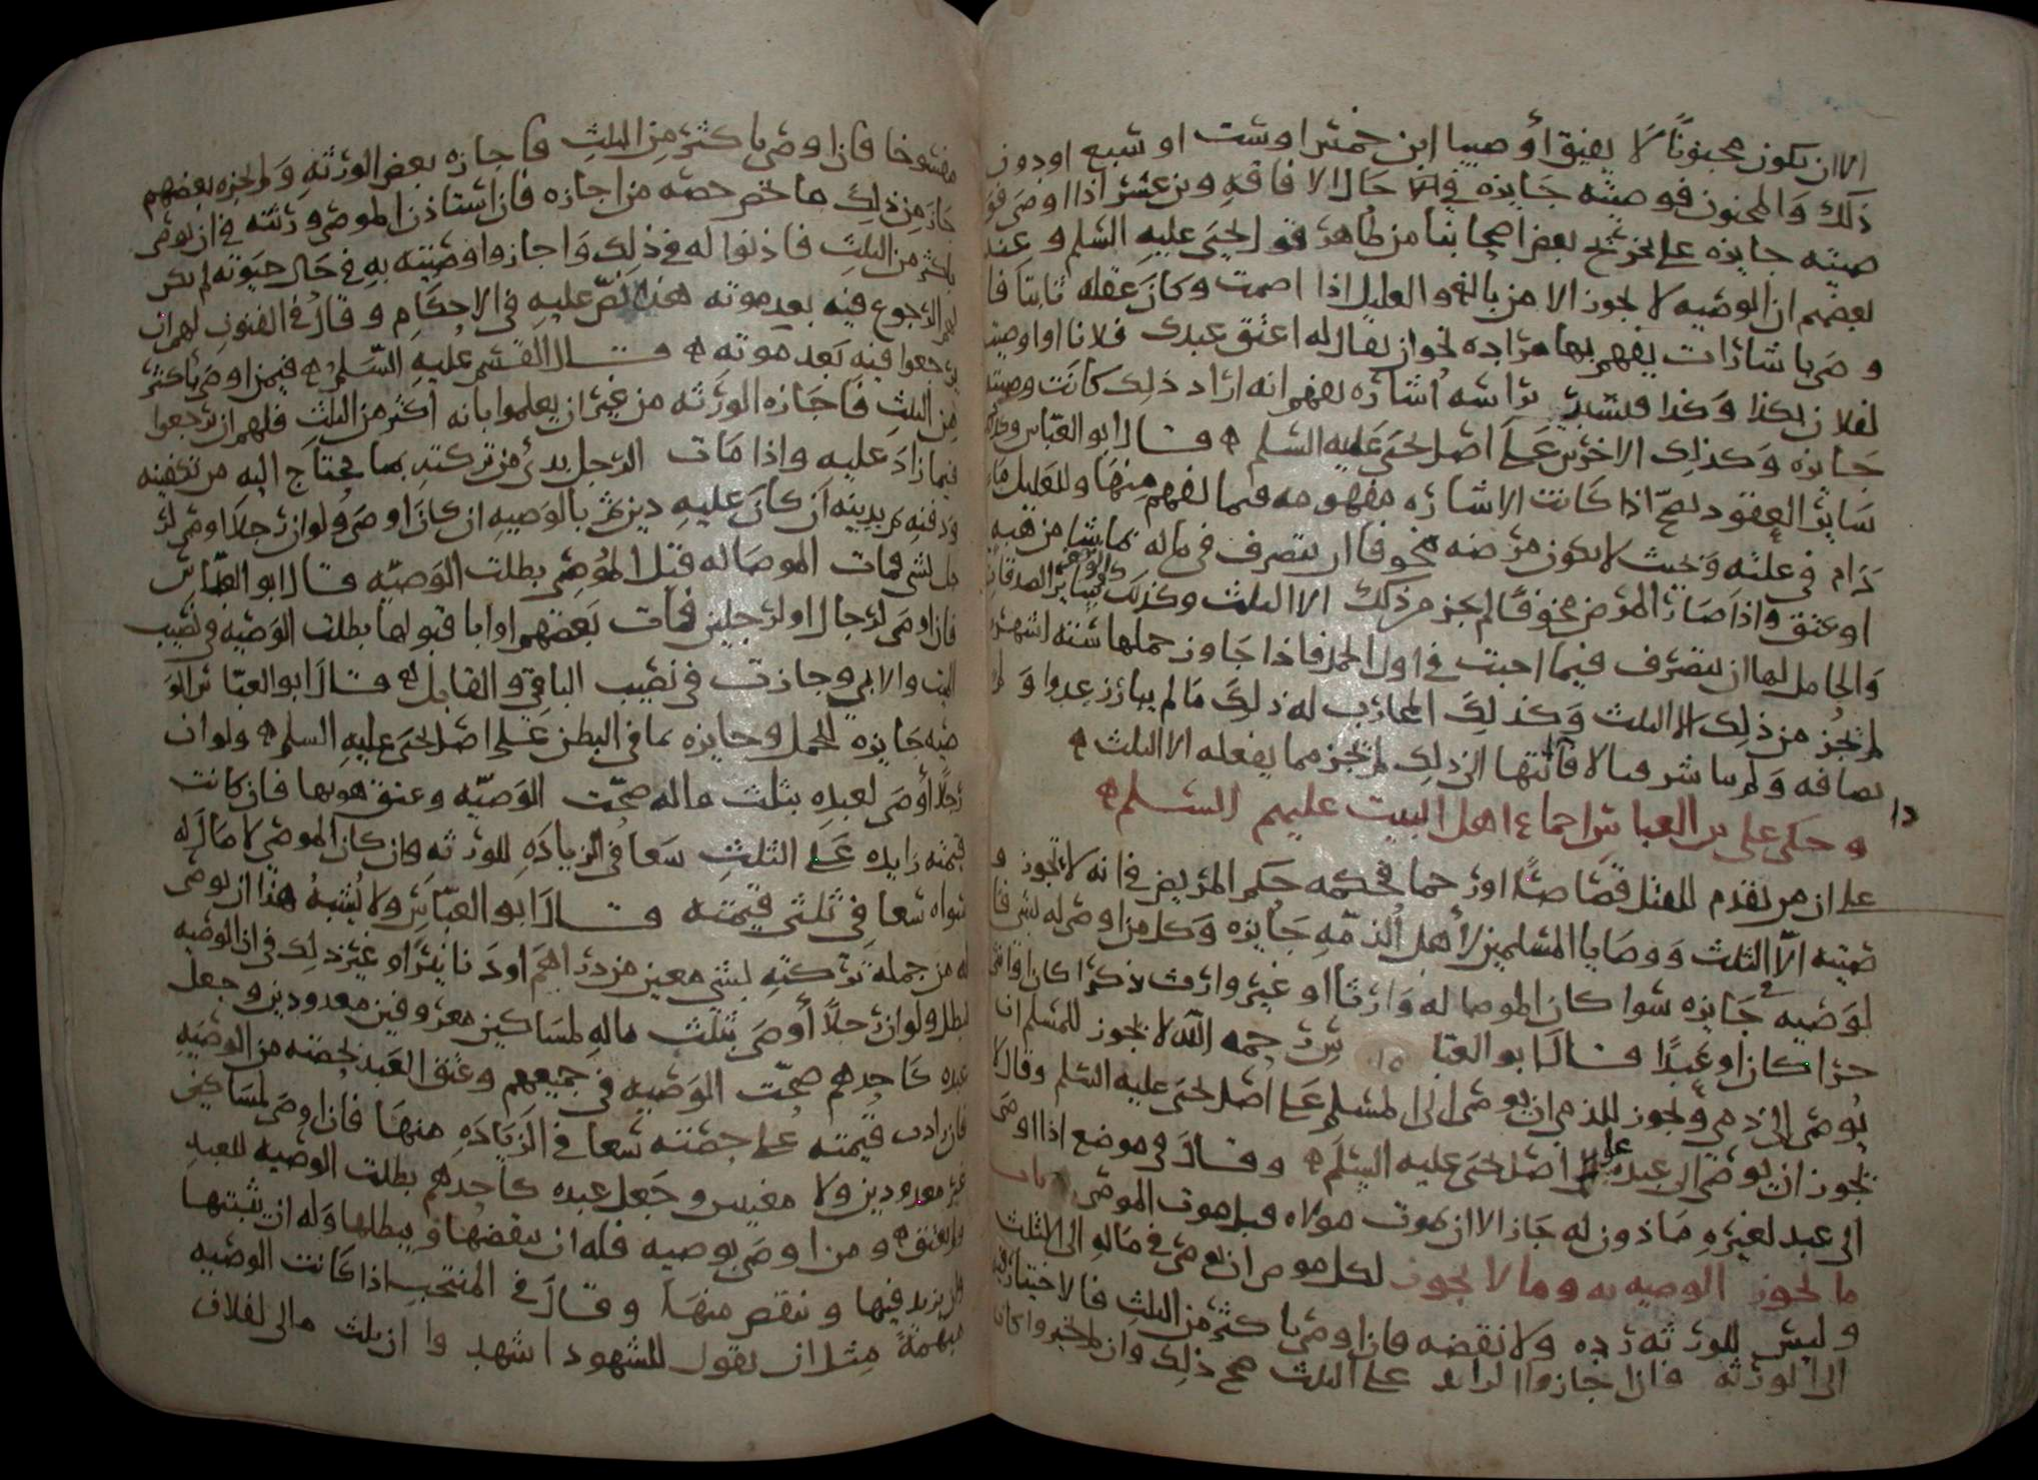 الا ان يكون مجنونًا لا يفيق أو صبيا ابن خمس او ست او سبع او دون
ذلك والمجنون فوصيته جايزه في حال الافاقه وبن عشر اذا اوصى فو
صيته جايزه على تخريج بعض اصحابنا من ظاهر قول يحيى عليه السلم وعند
بعضهم ان الوصيه لا تجوز الا من بالغ والعليل اذا اصمت وكان عقله ثابتا فا
وصى باشارات يفهم بها مراده نحو ان يقال له اعتق عبدك فلانا او اوصيت
لفلان بكذا وكذا فيشير براسه اشاره يفهم انه اراد ذلك كانت وصيته
جايزه وكذلك الاخرس على اصل يحيى عليه السلم قال ابو العباس وكذلك
ساير العقود تصح اذا كانت الاشاره مفهومه فيما يفهم منها وللعليل ما
دام في علته وبحيث لا يكون مرضه مخوفا ان يتصرف في ماله بما شا من هبه
او عتق واذا صار المرض مخوفا لم يجز من ذلك الا الثلث وكذلك في ساير الصدقات
والحامل لها ان تتصرف فيما احبت في اول الحمل فاذا جاوز حملها سته اشهر
لم تجز من ذلك الا الثلث وكذلك المحارب له ذلك ما لم يبارز عدوا و
مصافه ولم يباشر قتالا فاذا انتها الى ذلك لم يجز مما يفعله الا الثلث
وحكى علي بن العباس اجماع اهل البيت عليهم السلم
على ان من تقدم للقتل قصاصًا او رجما فحكمه حكم المريض في انه لا تجوز و
صيته الّا الثلث ووصايا المسلمين لأهل الذمّه جايزه وكل من اوصي له بشي فا
لوصيه جايزه سوا كان الموصا له وارثا او غير وارث ذكرا كان او انثى
حرا كان او عبدًا قال ابو العباس رحمه الله لا يجوز للمسلم ان
يوصي الى ذمي ويجوز للذمي ان يوصي الى المسلم على اصل يحيى عليه السلم وقال لا
يجوز ان يوصى الى عبده على اصل يحيى عليه السلم وقال في موضع اذا اوصى
الى عبد لغيره ماذون له جاز الا ان يموت مولاه قبل موت الموصي باب
ما يجوز الوصيه به وما لا يجوز لكل موص ان يوصي في ماله الى الثلث
وليس للورثه رده ولا نقضه فان اوصى باكثر من الثلث فالاختيار فيه
الى الورثه فان اجازوا الزايد على الثلث صح ذلك وان لم يخبروا كان
مفسوخا فان اوصى باكثر من الثلث فاجازه بعض الورثه ولم يجزه بعضهم
جاز من ذلك ما تخص حصه من اجازه فان استاذن الموصي ورثته في ان يوصي
باكثر من الثلث فاذنوا له في ذلك واجازوا وصيته به في حال حيوته لم يكن
لهم الرجوع فيه بعد موته هذا نصّ عليه في الاحكام وقال في الفنون لهم ان
يرجعوا فيه بعد موته قال القسم عليه السلم فيمن اوصى باكثر
من الثلث فاجازه الورثه من غير ان يعلموا بانه اكثر من الثلث فلهم ان يرجعوا
فيما زاد عليه واذا مات الرجل بدئ من تركته بما يحتاج اليه من تكفينه
ودفنه ثم بدينه ان كان عليه دين ثم بالوصيه ان كان اوصى ولو ان رجلا اوصى لر
جل بشي فمات الموصا له قبل الموصي بطلت الوصيه قال ابو العباس
فان اوصى لرجال او لرجلين فمات بعضهم او ابا قبولها بطلت الوصيه في نصيب
الميت والابي وجازت في نصيب الباقي والقابل قال ابو العباس الو
صيه جايزه للحمل وجايزه بما في البطن على اصل يحيى عليه السلم ولو ان
رجلا أوصى لعبده بثلث ماله صحّت الوصيّه وعتق هو بها فان كانت
قيمته زايده على الثلث سعا في الزياده للورثه فان كان الموصي لا مال له
سواه سعا في ثلثي قيمته قال ابو العباس ولا يشبه هذا ان يوصي
له من جملة تركته بشي معين من دراهم او دنانير او غير ذلك في ان الوصيه
تبطل ولو ان رجلاً أوصى بثلث ماله لمساكين معروفين معدودين وجعل
عبده كاحدهم صحّت الوصيه في جميعهم وعتق العبد بحصته من الوصيه
فان زادت قيمته على حصته سعا في الزياده منها فان اوصى لمساكين
غير معدودين ولا معينين وجعل عبده كاحدهم بطلت الوصيه للعبد
ولم يعتق ومن اوصى بوصيه فله ان ينقضها ويبطلها وله ان يثبتها
وان يزيد فيها وينقص منها وقال في المنتخب اذا كانت الوصيه
مبهمةً مثل ان يقول للشهود اشهدوا ان ثلث مالي لفلان